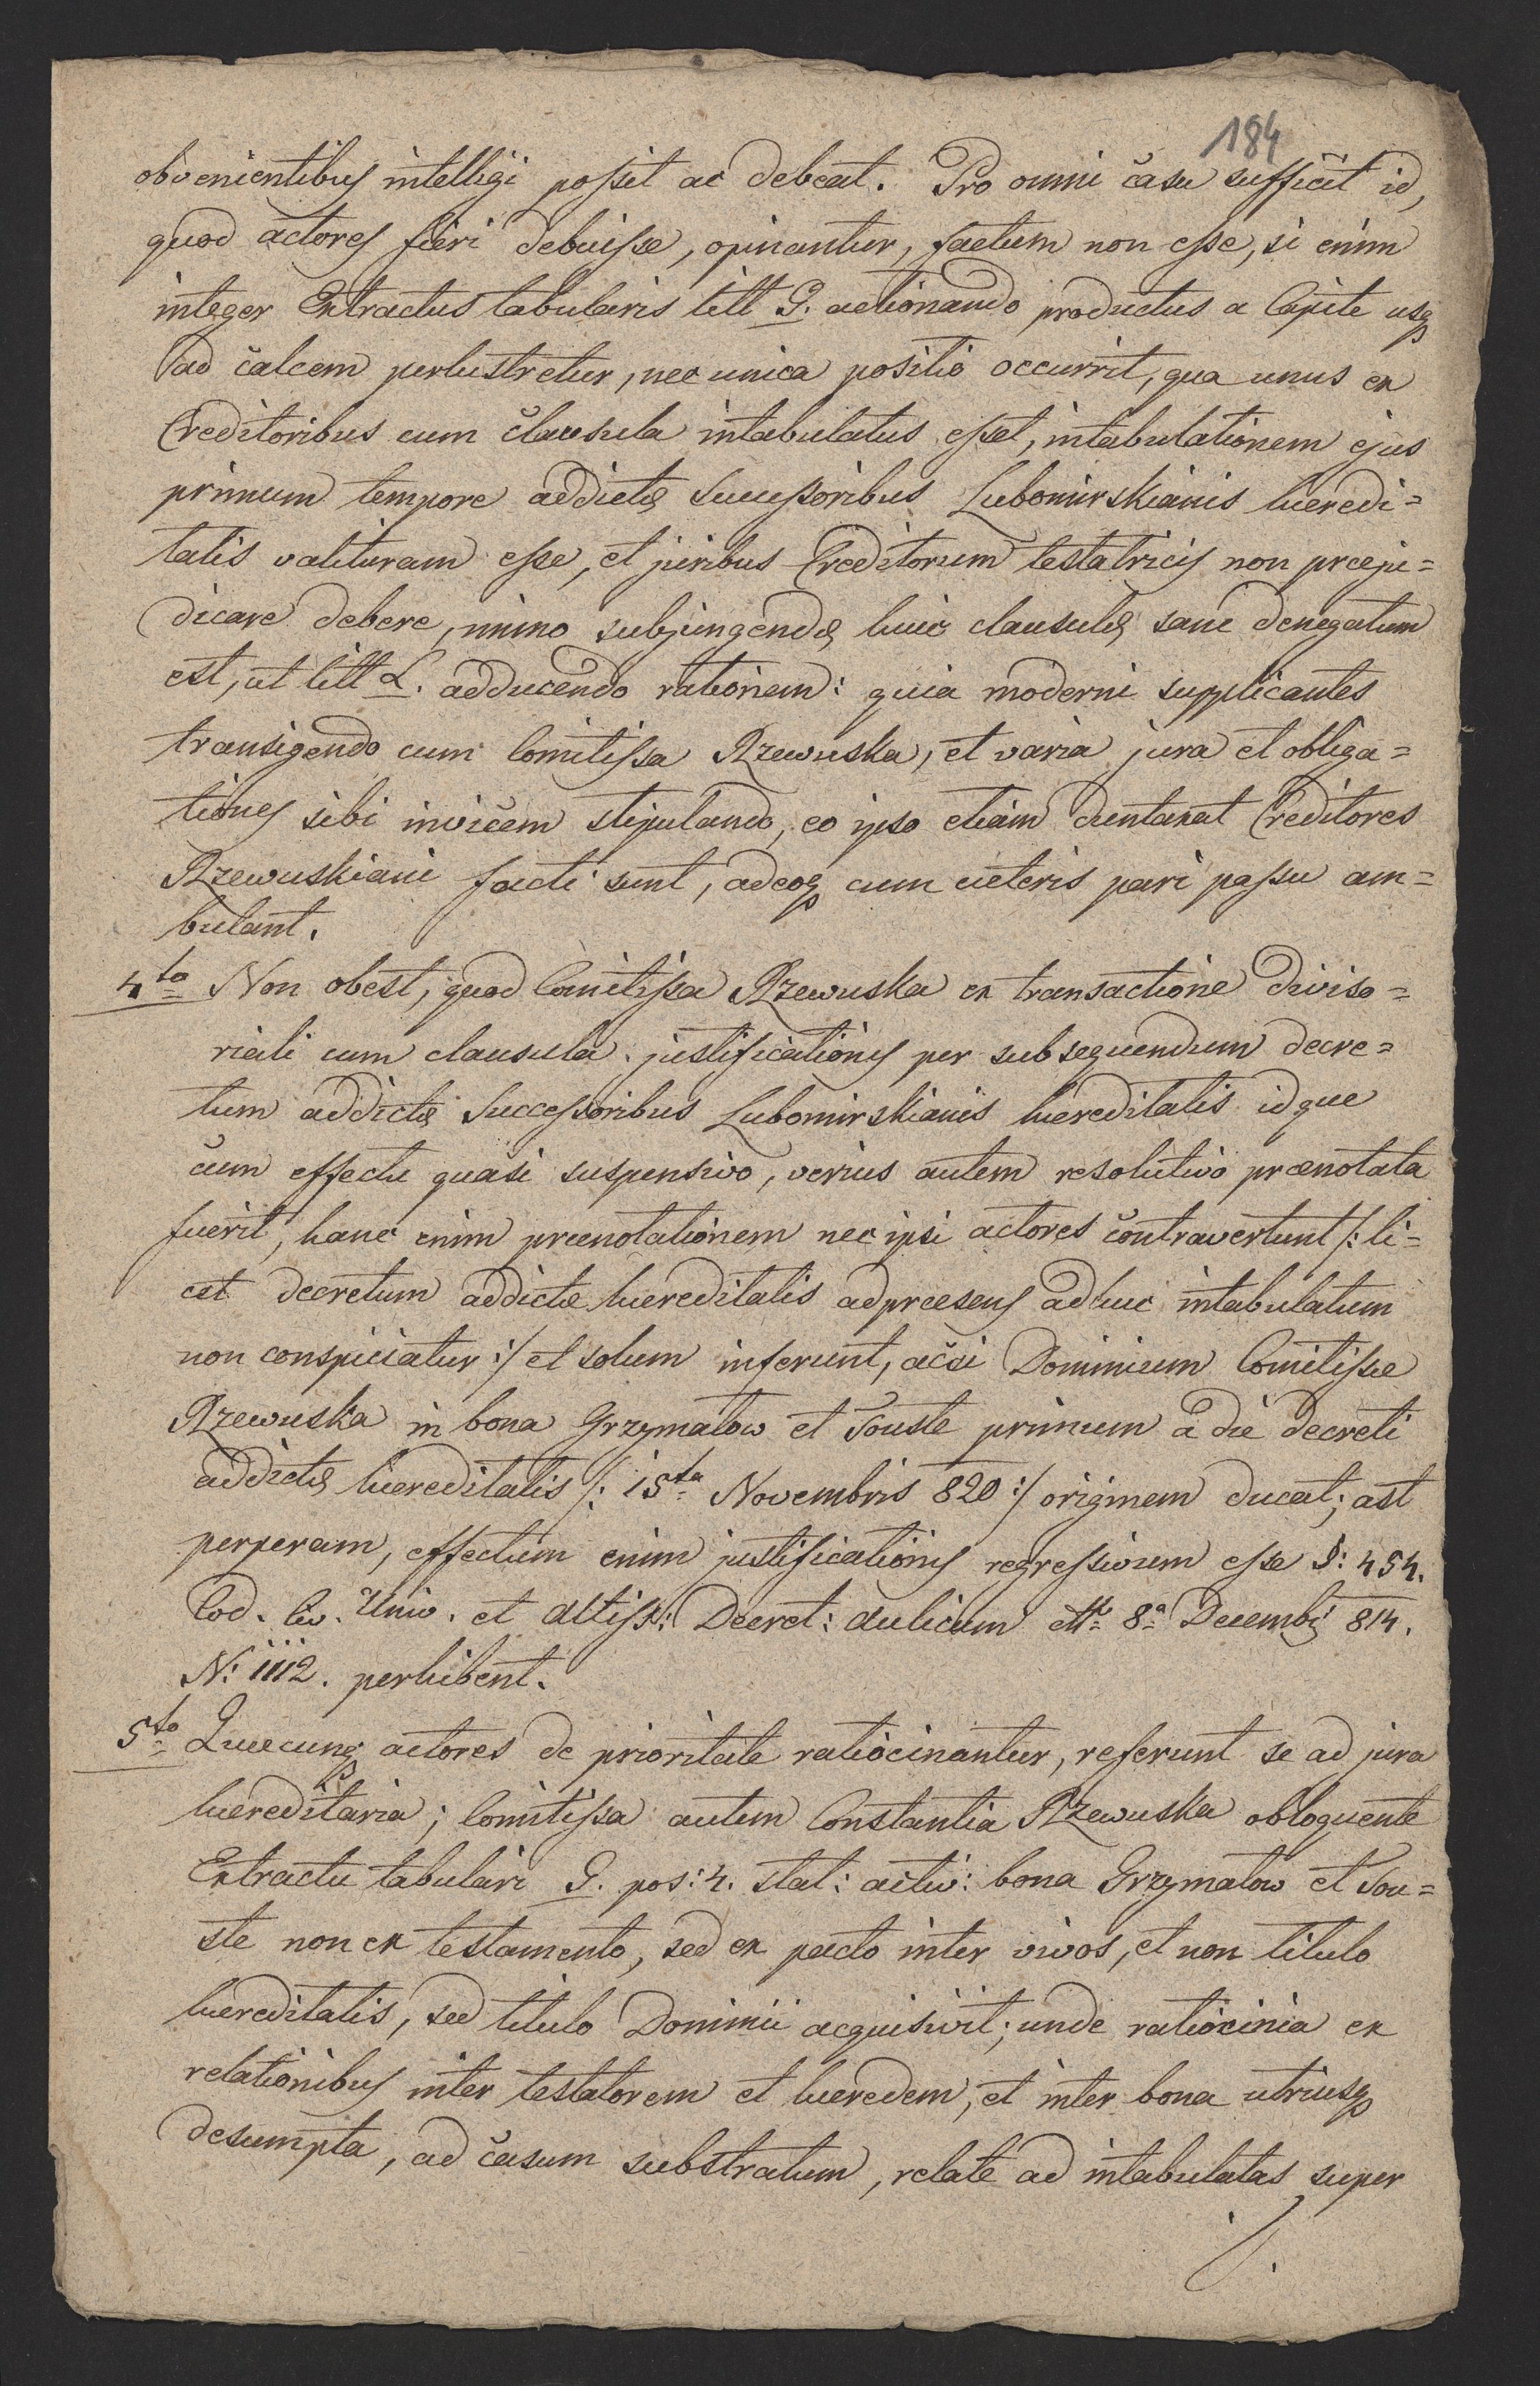 184
obvenientibus intelligi possit ac debeat. Pro omni casu sufficit id,
quod actores fieri debuisse, opinantur, factum non esse, si enim
integer Extractus tabularis litt G. actionando productus a Capite usq
ad calcem perlustretur, nec unica positio occurrit, qua unus ex
Creditoribus cum clausula intabulatus esset, intabulationem ejus
primum tempore addictæ Successoribus Lubomirskianis hæredi=
tatis valituram esse, et juribus Creditorum testatricis non præju=
dicare debere, immo subjungendæ huic clausulæ sane denegatum
est, ut litt L. adducendo rationem: quia moderni supplicantes
transigendo cum Comitissa Rzewuska, et varia jura et obliga=
tiones sibi invicem stipulando, eo ipso etiam duntaxat Creditores
Rzewuskiani facti sunt, adeoq cum cæteris pari passu am=
bulant.
4to Non obest, quod Comitissa Rzewuska ex transactione diviso=
riali cum clausula justificationis per subsequendum decre=
tum addictæ Successoribus Lubomirskianis hæreditatis idque
cum effectu quasi suspensivo, verius autem resolutivo prænotata
fuerit, hanc enim prænotationem nec ipsi actores contravertunt /: li=
cet decretum addictæ hæreditatis adpræsens adhuc intabulatum
non conspiciatur :/ et solum inferunt, acsi Dominium Comitissæ
Rzewuska in bona Grzymałow et Touste primum a die decreti
addictæ hæreditatis /: 15ta Novembris 820 :/ originem ducat; ast
perperam, effectum enim justificationis regressivum esse §: 454.
Cod. Civ. Univ. et Altiss: Decret: aulicum dtto 8a Decembris 814.
N: 1112. perhibent.
5to Quæcunq actores de prioritate ratiocinantur, referunt se ad jura
hæreditaria; Comitissa autem Constantia Rzewuska obloquente
Extractu tabulari G. pos: 4. stat: activ: bona Grzymałow et Tou=
ste non ex testamento, sed ex pacto inter vivos, et non titulo
hæreditatis, sed titulo Dominii acquisivit; unde ratiocinia ex
relationibus inter testatorem et hæredem, et inter bona utriusq
desumpta, ad casum substratum, relate ad intabulatas super